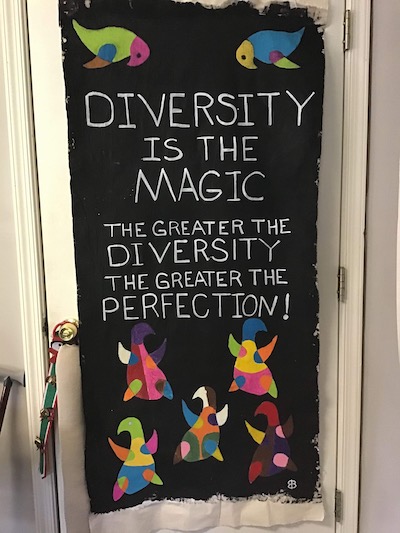 DIVERSITY
IS THE
MAGIC
THE GREATER THE
DIVERSITY
THE GREATER THE
PERFECTION!